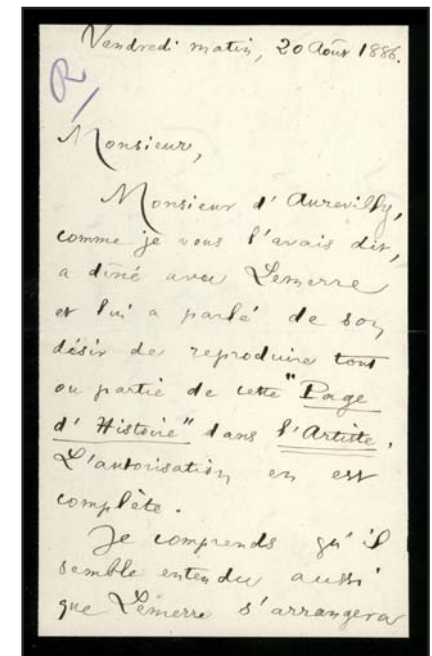 Vendredi matin, 20 Août 1886.
R
Monsieur,
Monsieur d'Aurevilly,
comme je vous l'avais dit,
a dîné avec Lemerre
et lui a parlé de son
désir de reproduire tout
ou partie de cette "Page
d'Histoire" dans l'Artiste.
L'autorisation en est
complète.
Je comprends qu'il
semble entendu aussi
que Lemerre s'arrangera